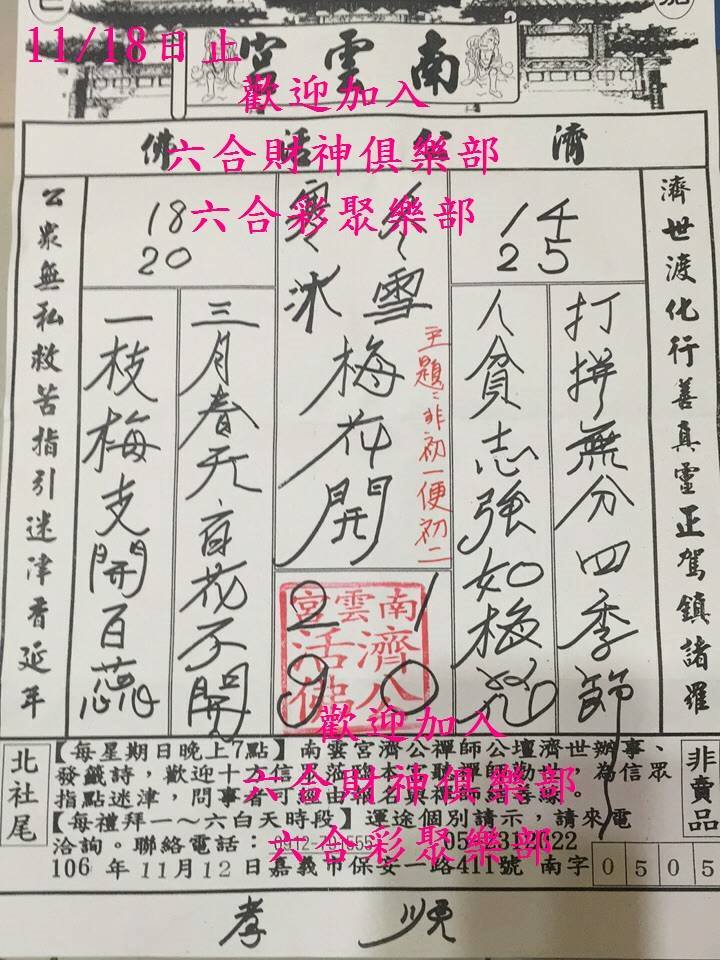 11/18日止
南雲宮
歡迎加入
六合財神俱樂部
六合彩聚樂部
濟公活佛
濟世渡化行善真靈正駕鎮諸羅
14
25
打拼無分四季節
人貧志強如梅花
主題:非初一便初二
雪
梅花開
冰
18
20
三月春天百花不開
一枝梅支開百蕊
公眾無私救苦指引迷津香延年
南雲宮
濟公
活佛
1
0
2
9
歡迎加入
六合財神俱樂部
六合彩聚樂部
北社尾
【每星期日晚上7點】南雲宮濟公禪師公壇濟世辦事、
發籤詩,歡迎十方信眾蒞臨本宮聽禪師勸世,為信眾
指點迷津,問事者可經由報名與禪師結善緣。
【每禮拜一~六白天時段】運途個別請示,請來電
洽詢。聯絡電話:
106年11月12日嘉義市保安一路411號 南字 0505
非賣品
孝順